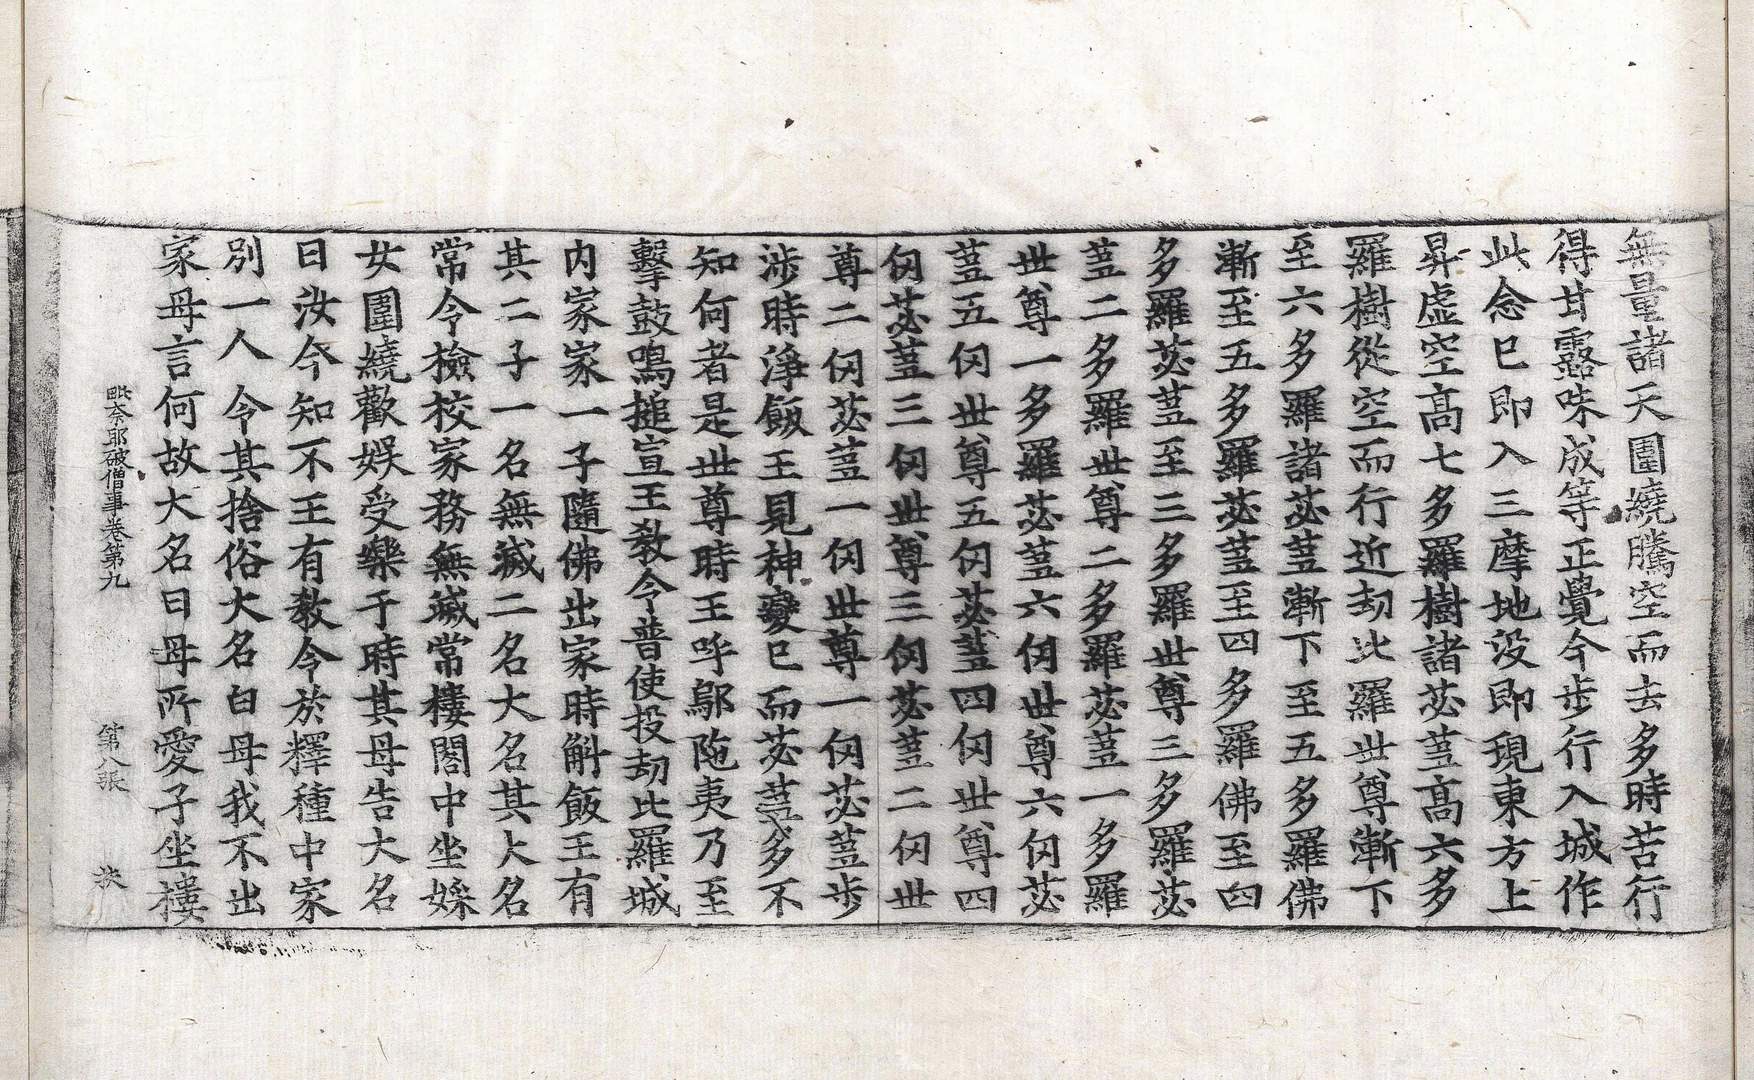 無量諸天圍繞騰空而去多時苦行
得甘露味成等正覺今步行入城作
此念已即入三摩地没即現東方上
昇虛空高七多羅樹諸苾蒭高六多
羅樹從空而行近劫比羅世尊漸下
至六多羅諸苾蒭漸下至五多羅佛
漸至五多羅苾蒭至四多羅佛至四
多羅苾蒭至三多羅世尊三多羅苾
蒭二多羅世尊二多羅苾蒭一多羅
世尊一多羅苾蒭六仞世尊六仞苾
蒭五仞世尊五仞苾蒭四仞世尊四
仞苾蒭三仞世尊三仞苾蒭二仞世
尊二仞苾蒭一仞世尊一仞苾蒭步
涉時淨飯王見神變已而苾蒭多不
知何者是世尊時王呼鄔陁夷乃至
擊鼓鳴搥宣王教令普使投劫比羅城
内家家一子隨佛出家時斛飯王有
其二子一名無滅二名大名其大名
常令檢挍家務無滅常樓閣中坐婇
女圍繞歡娛受樂于時其母告大名
曰汝今知不王有教令於釋種中家
別一人令其捨俗大名白母我不出
家母言何故大名曰母所愛子坐樓
毗奈耶破僧事卷第九 第八張 扶